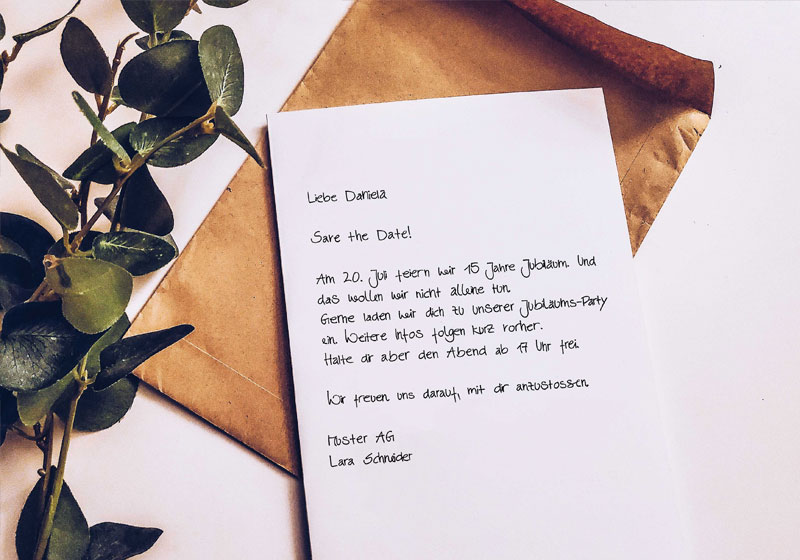 Liebe Daniela
Save the Date!
Am 20. Juli feiern wir 15 Jahre Jubiläum. Und
das wollen wir nicht alleine tun.
Gerne laden wir dich zu unserer Jubiläums-Party
ein. Weitere Infos folgen kurz vorher.
Halte dir aber den Abend ab 17 Uhr frei.
Wir freuen uns darauf, mit dir anzustossen.
Muster AG
Lara Schneider